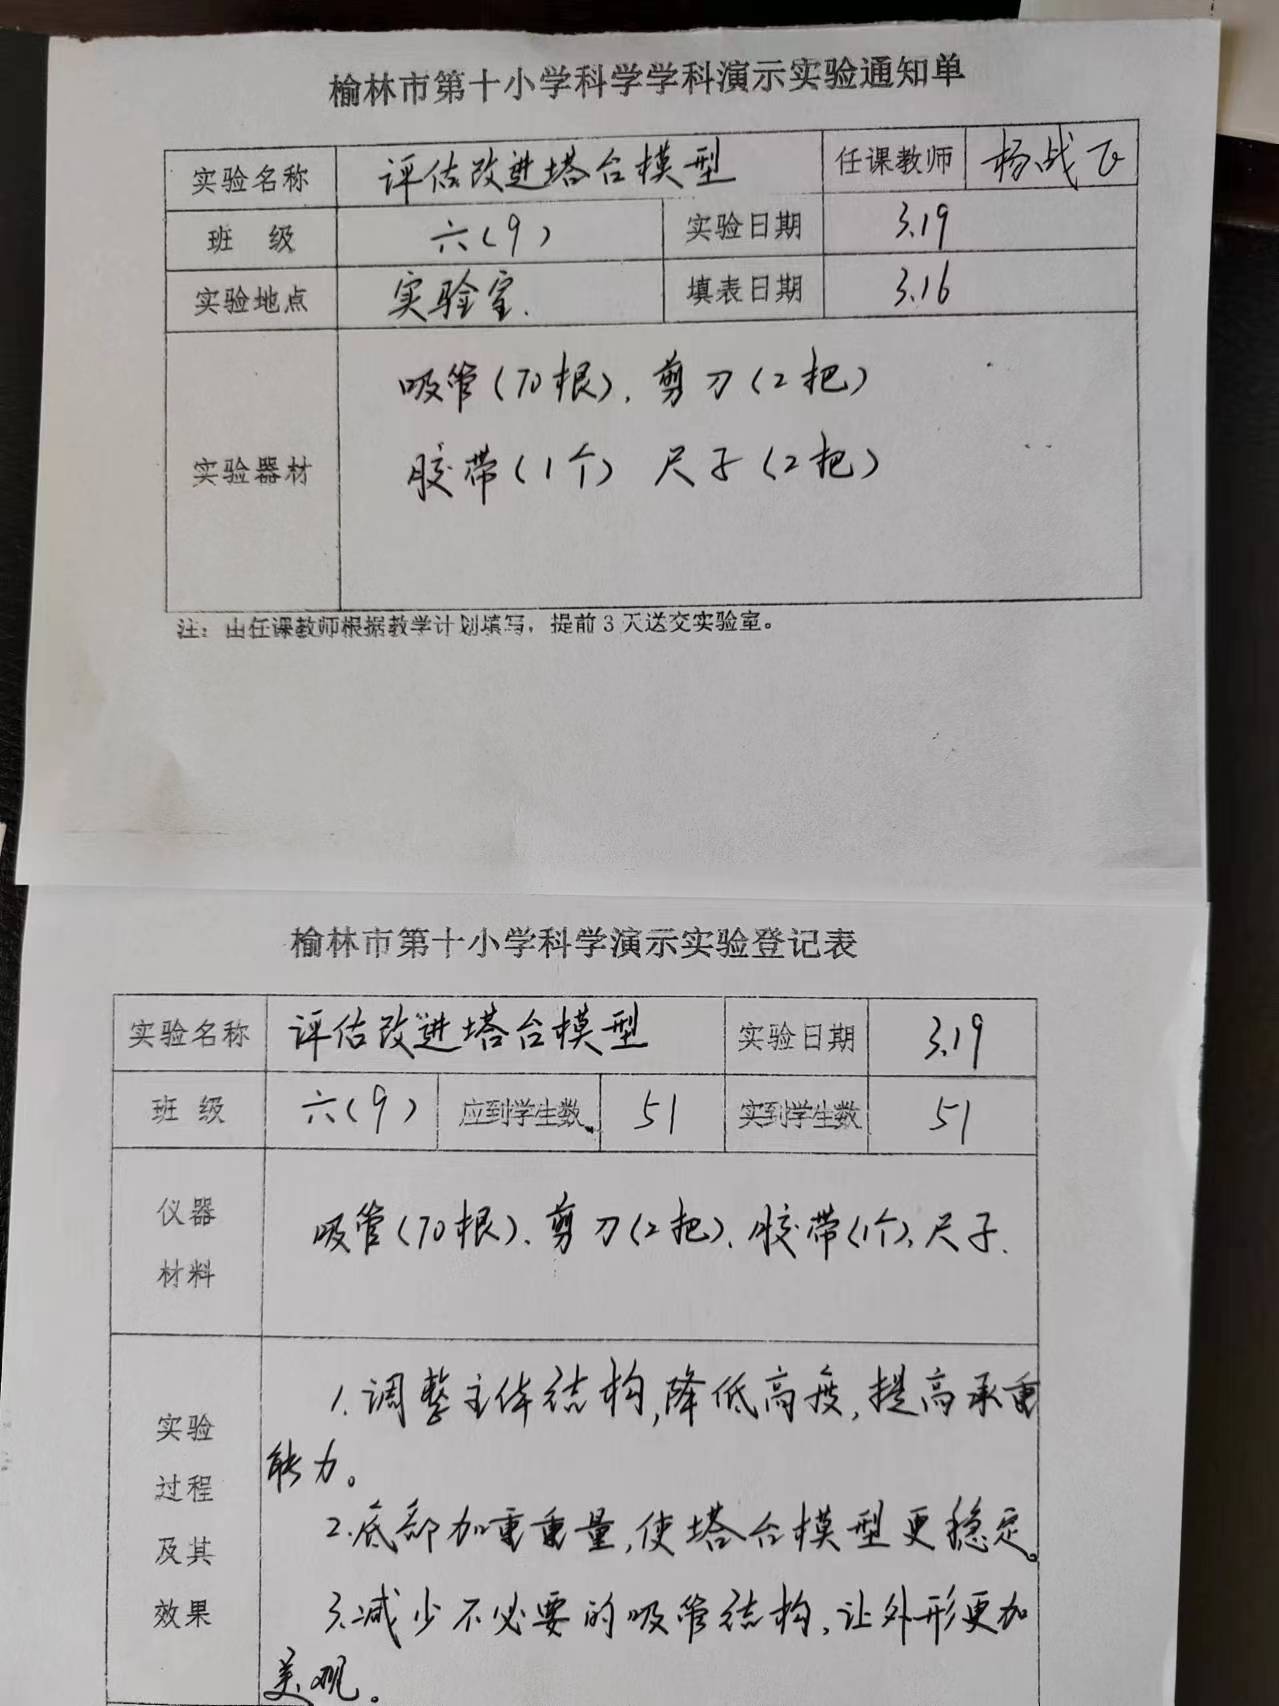 榆林市第十小学科学学科演示实验通知单
实验名称 评估改进塔台模型 任课教师 杨战飞
班 级 六(9) 实验日期 3.19
实验地点 实验室. 填表日期 3.16
吸管(70根), 剪刀(2把)
实验器材 胶带(1个) 尺子(2把)
注: 由任课教师根据教学计划填写, 提前3天送交实验室。
榆林市第十小学科学演示实验登记表
实验名称 评估改进塔台模型 实验日期 3.19
班 级 六(9) 应到学生数 51 实到学生数 51
仪器
材料
吸管(70根)、剪刀(2把)、胶带(1个)、尺子.
实验
过程
及其
效果
1.调整主体结构,降低高度,提高承重
能力。
2.底部加重重量,使塔台模型更稳定。
3.减少不必要的吸管结构,让外形更加
美观。